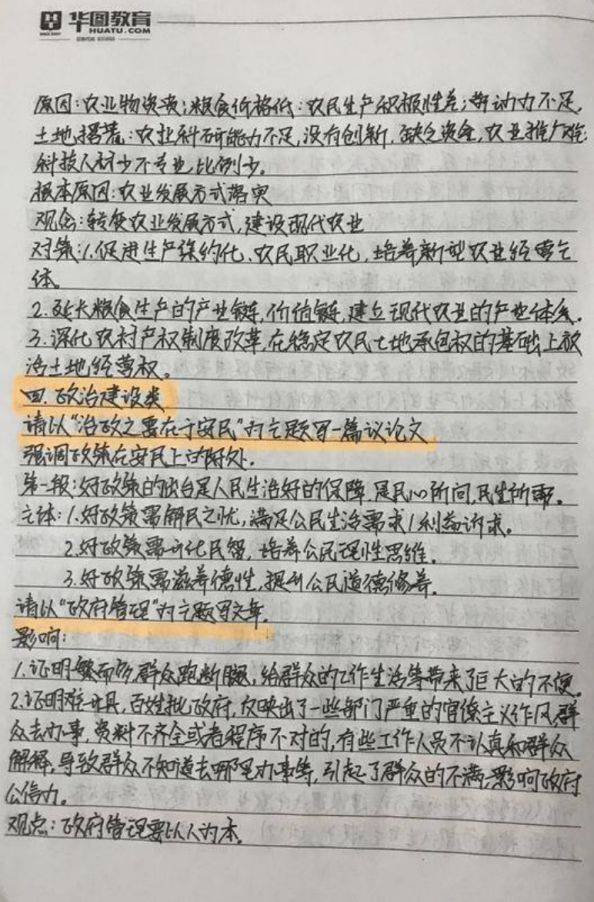 华图教育
HUATU.COM
原因:农业物资贵;粮食价格低:农民生产积极性差;劳动力不足,
土地撂荒:农业科研能力不足,没有创新,缺乏资金,农业推广难;
科技人才少不专业,比例少。
根本原因:农业发展方式落实
观念:转变农业发展方式,建设现代农业
对策:1.促进生产集约化、农民职业化,培养新型农业经营主
体。
2.延长粮食生产的产业链,价值链,建立现代农业的产业体系.
3.深化农村产权制度改革,在稳定农民土地承包权的基础上放
活土地经营权。
四.政治建设类
请以“治政之要在于安民”为主题写一篇议论文
强调政策在安民上的好处.
第一报:好政策的出台是人民生活好的保障,是民心所向,民生所
主体:1.好政策需解民之忧,满足公民生活需求/利益诉求。
2.好政策需开化民智,培养公民理性思维.
3.好政策需滋养德性,提升公民道德修养。
请以“政府管理”为主题写文章.
影响:
1.证明繁而多,群众跑断腿,给群众的工作生活等带来了巨大的不便。
2.证明难开具,百姓批政府,反映出了一些部门严重的官僚主义作风,群
众去办事,资料不齐全或者程序不对的,有些工作人员不认真和群众
解释,导致群众不知道去哪里办事等,引起了群众的不满,影响政府
公信力.
观点:政府管理要以人为本.